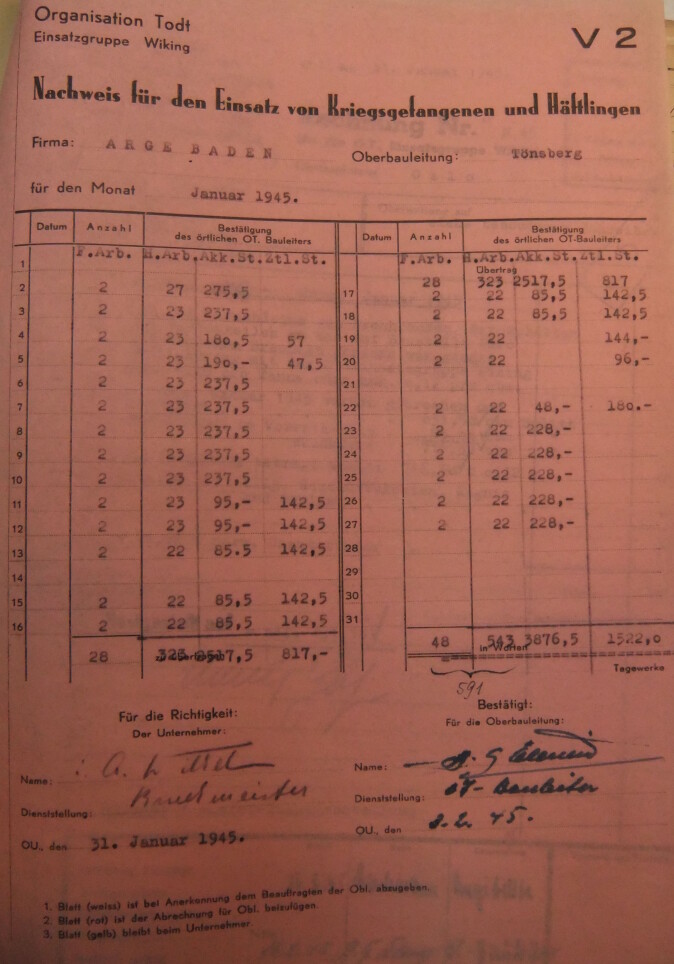 Organisation Todt
Einsatzgruppe Wiking
V 2
Nachweis für den Einsatz von Kriegsgefangenen und Häftlingen
Firma: ARGE BADEN Oberbauleitung: Tönsberg
für den Monat Januar 1945.
Datum Anzahl Bestätigung des örtlichen OT. Bauleiters
F.Arb. H.Arb. Akk.St. Ztl.St.
1
2 2 27 275,5
3 2 23 237,5
4 2 23 180,5 57
5 2 23 190,- 47,5
6 2 23 237,5
7 2 23 237,5
8 2 23 237,5
9 2 23 237,5
10 2 23 237,5
11 2 23 95,- 142,5
12 2 23 95,- 142,5
13 2 22 85.5 142,5
14
15 2 22 85,5 142,5
16 2 22 85,5 142,5
28 323 2517,5 817,-
Datum Anzahl Bestätigung des örtlichen OT-Bauleiters
F.Arb. H.Arb. Akk.St. Ztl.St.
Übertrag
28 323 2517,5 817
17 2 22 85,5 142,5
18 2 22 85,5 142,5
19 2 22 144,-
20 2 22 96,-
21
22 2 22 48,- 180.-
23 2 22 228,-
24 2 22 228,-
25 2 22 228,-
26 2 22 228,-
27 2 22 228,-
28
29
30
31
48 543 3876,5 1522,0
in Worten
Tagewerke
591
Für die Richtigkeit:
Der Unternehmer:
Name:
Dienststellung:
OU., den 31. Januar 1945.
Bestätigt:
Für die Oberbauleitung:
Name:
Dienststellung: OT-Bauleiter
OU., den 8.2.45.
1. Blatt (weiss) ist bei Anerkennung dem Beauftragten der Obl. abzugeben.
2. Blatt (rot) ist der Abrechnung für Obl. beizufügen.
3. Blatt (gelb) bleibt beim Unternehmer.